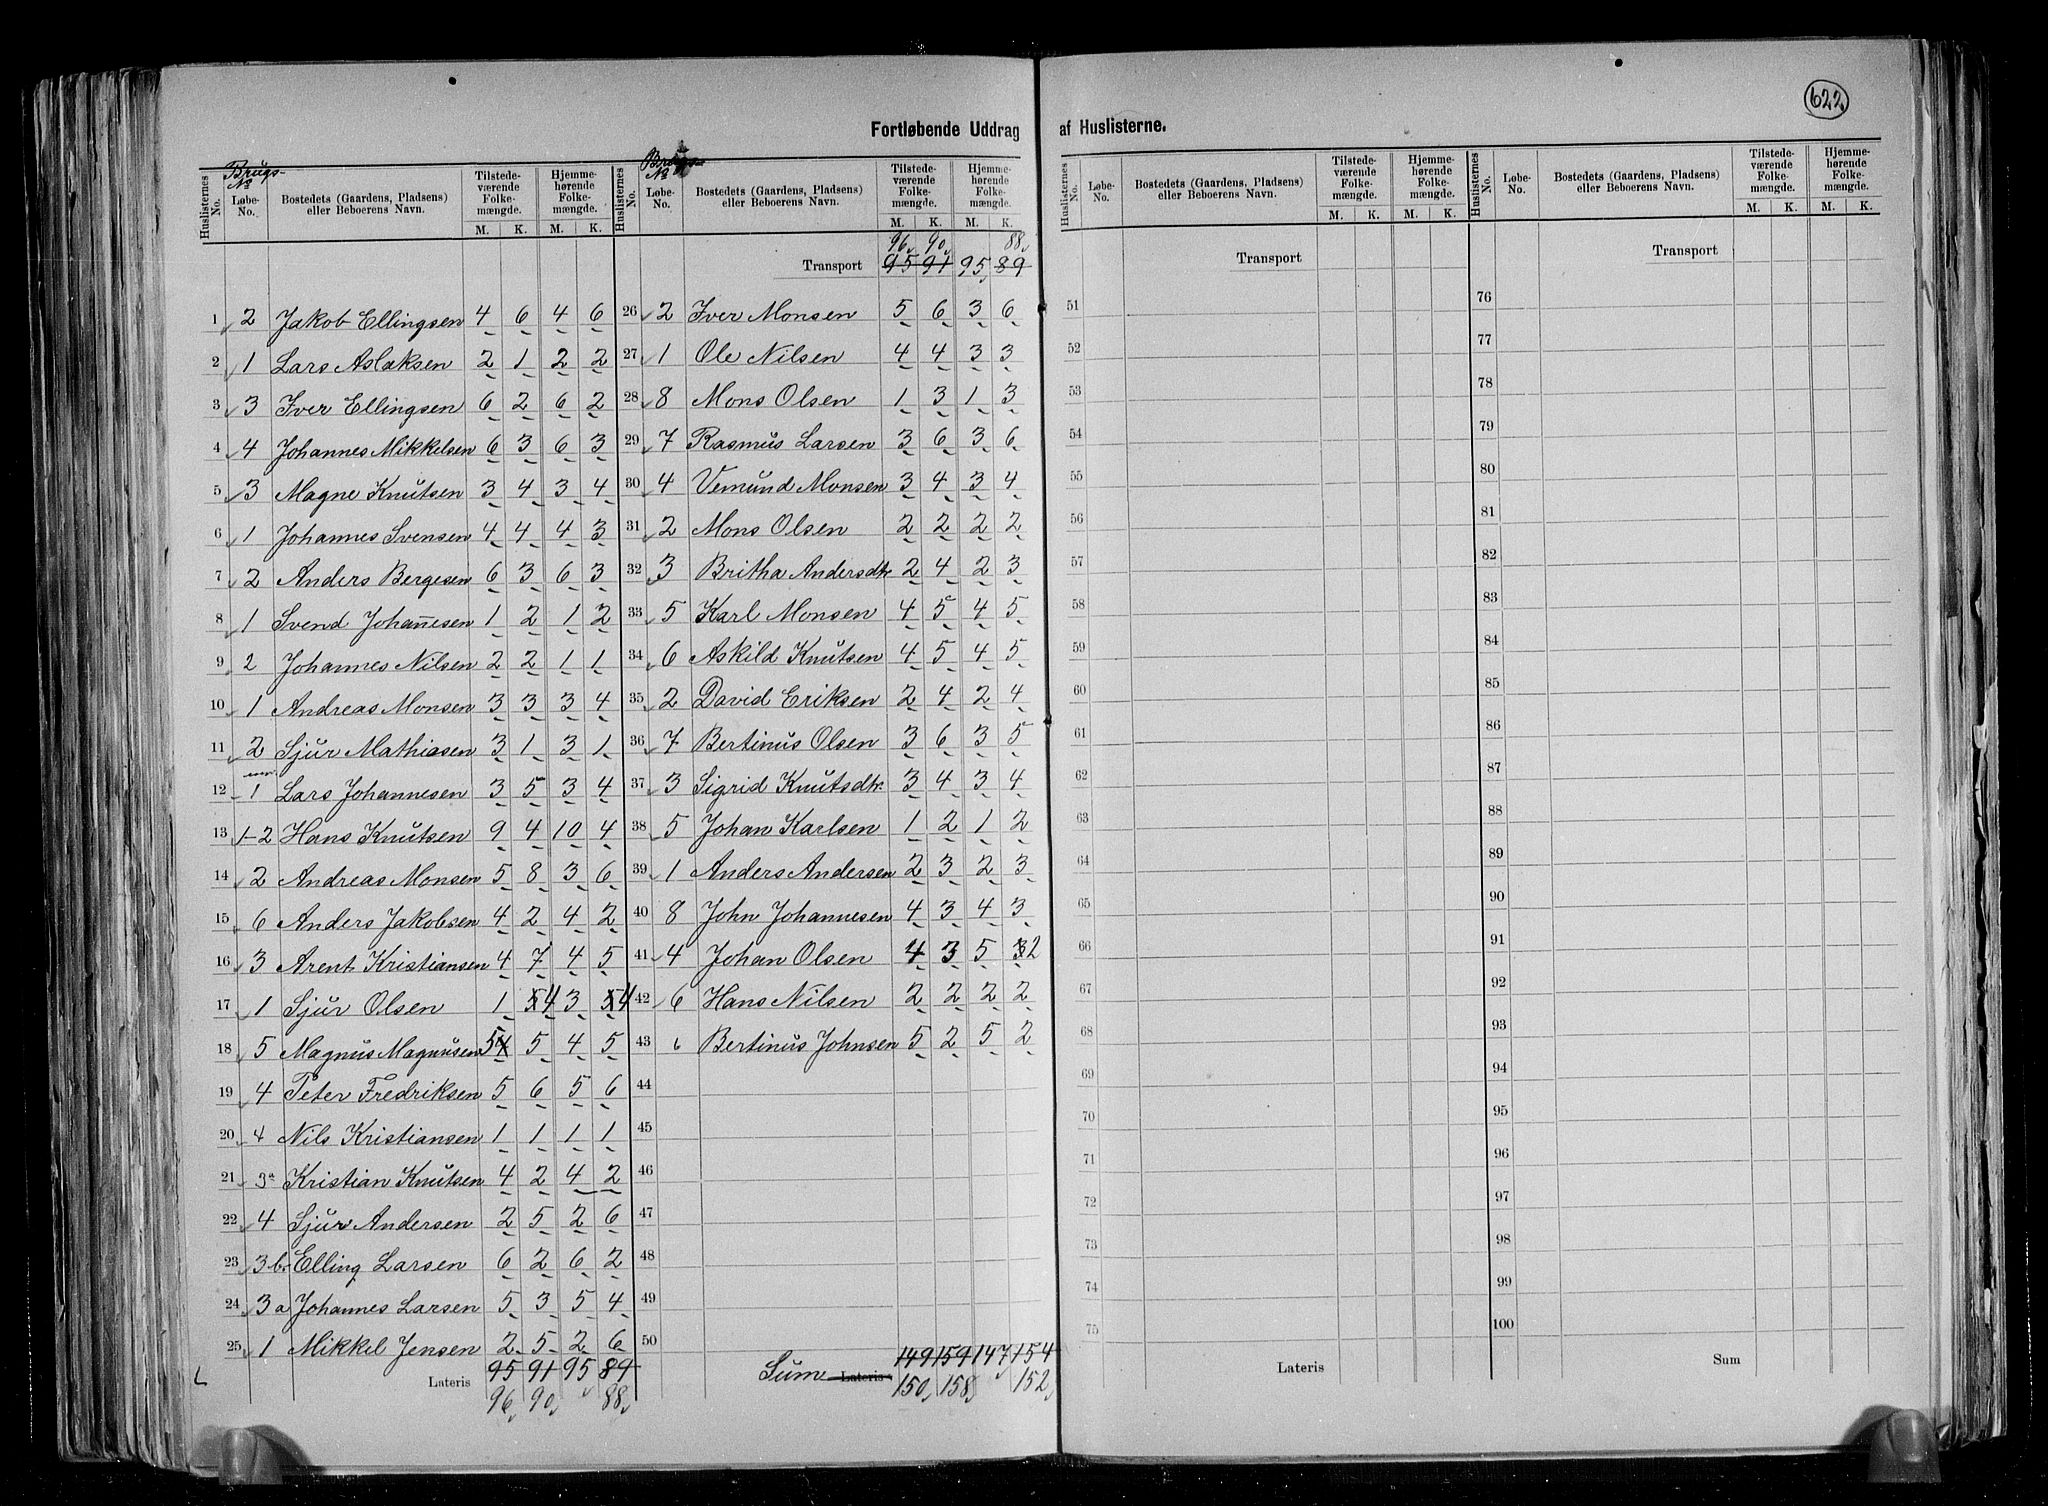 622
Fortløbende Uddrag af Huslisterne.
Huslisternes No. | Brugs-No Løbe-No. | Bostedets (Gaardens, Pladsens) eller Beboerens Navn. | Tilstedeværende Folkemængde. M. K. | Hjemmehørende Folkemængde. M. K.
1 2 Jakob Ellingsen 4 6 4 6
2 1 Lars Aslaksen 2 1 2 2
3 3 Iver Ellingsen 6 2 6 2
4 4 Johannes Mikkelsen 6 3 6 3
5 3 Magne Knutsen 3 4 3 4
6 1 Johannes Svensen 4 4 4 3
7 2 Anders Bergesen 6 3 6 3
8 1 Svend Johannesen 1 2 1 2
9 2 Johannes Nilsen 2 2 1 1
10 1 Andreas Monsen 3 3 3 4
11 2 Sjur Mathiasen 3 1 3 1
12 1 Lars Johannesen 3 5 3 4
13 1-2 Hans Knutsen 9 4 10 4
14 2 Andreas Monsen 5 8 3 6
15 6 Anders Jakobsen 4 2 4 2
16 3 Arent Kristiansen 4 7 4 5
17 1 Sjur Olsen 1 5 4 3 5 4
18 5 Magnus Magnusen 5 4 5 4 5
19 4 Peter Fredriksen 5 6 5 6
20 4 Nils Kristiansen 1 1 1 1
21 3a Kristian Knutsen 4 2 4 2
22 4 Sjur Andersen 2 5 2 6
23 3b Elling Larsen 6 2 6 2
24 3a Johannes Larsen 5 3 5 4
25 1 Mikkel Jensen 2 5 2 6
Lateris 95 91 95 89
96 90 88
Huslisternes No. | Brugs-No Løbe-No. | Bostedets (Gaardens, Pladsens) eller Beboerens Navn. | Tilstedeværende Folkemængde. M. K. | Hjemmehørende Folkemængde. M. K.
96 90 88
Transport 95 91 95 89
26 2 Iver Monsen 5 6 3 6
27 1 Ole Nilsen 4 4 3 3
28 8 Mons Olsen 1 3 1 3
29 7 Rasmus Larsen 3 6 3 6
30 4 Vemund Monsen 3 4 3 4
31 2 Mons Olsen 2 2 2 2
32 3 Britha Andersdtr 2 4 2 3
33 5 Karl Monsen 4 5 4 5
34 6 Askild Knutsen 4 5 4 5
35 2 David Eriksen 2 4 2 4
36 7 Bertinus Olsen 3 6 3 5
37 3 Sigrid Knutsdtr. 3 4 3 4
38 5 Johan Karlsen 1 2 1 2
39 1 Anders Andersen 2 3 2 3
40 8 John Johannesen 4 3 4 3
41 4 Johan Olsen 4 3 5 3 2
42 6 Hans Nilsen 2 2 2 2
43 6 Bertinus Johnsen 5 2 5 2
44
45
46
47
48
49
50
Sum Lateris 149 159 147 154
150 158 152
Huslisternes No. | Løbe-No. | Bostedets (Gaardens, Pladsens) eller Beboerens Navn. | Tilstedeværende Folkemængde. M. K. | Hjemmehørende Folkemængde. M. K.
Transport
51
52
53
54
55
56
57
58
59
60
61
62
63
64
65
66
67
68
69
70
71
72
73
74
75
Lateris
Huslisternes No. | Løbe-No. | Bostedets (Gaardens, Pladsens) eller Beboerens Navn. | Tilstedeværende Folkemængde. M. K. | Hjemmehørende Folkemængde. M. K.
Transport
76
77
78
79
80
81
82
83
84
85
86
87
88
89
90
91
92
93
94
95
96
97
98
99
100
Sum